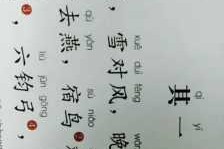 qí yī
其一
xuě duì fēng wǎn
，雪对风，晚
qù yàn sù niǎo
去燕，宿鸟
liù jūn gōng
❸，六钧弓❹，